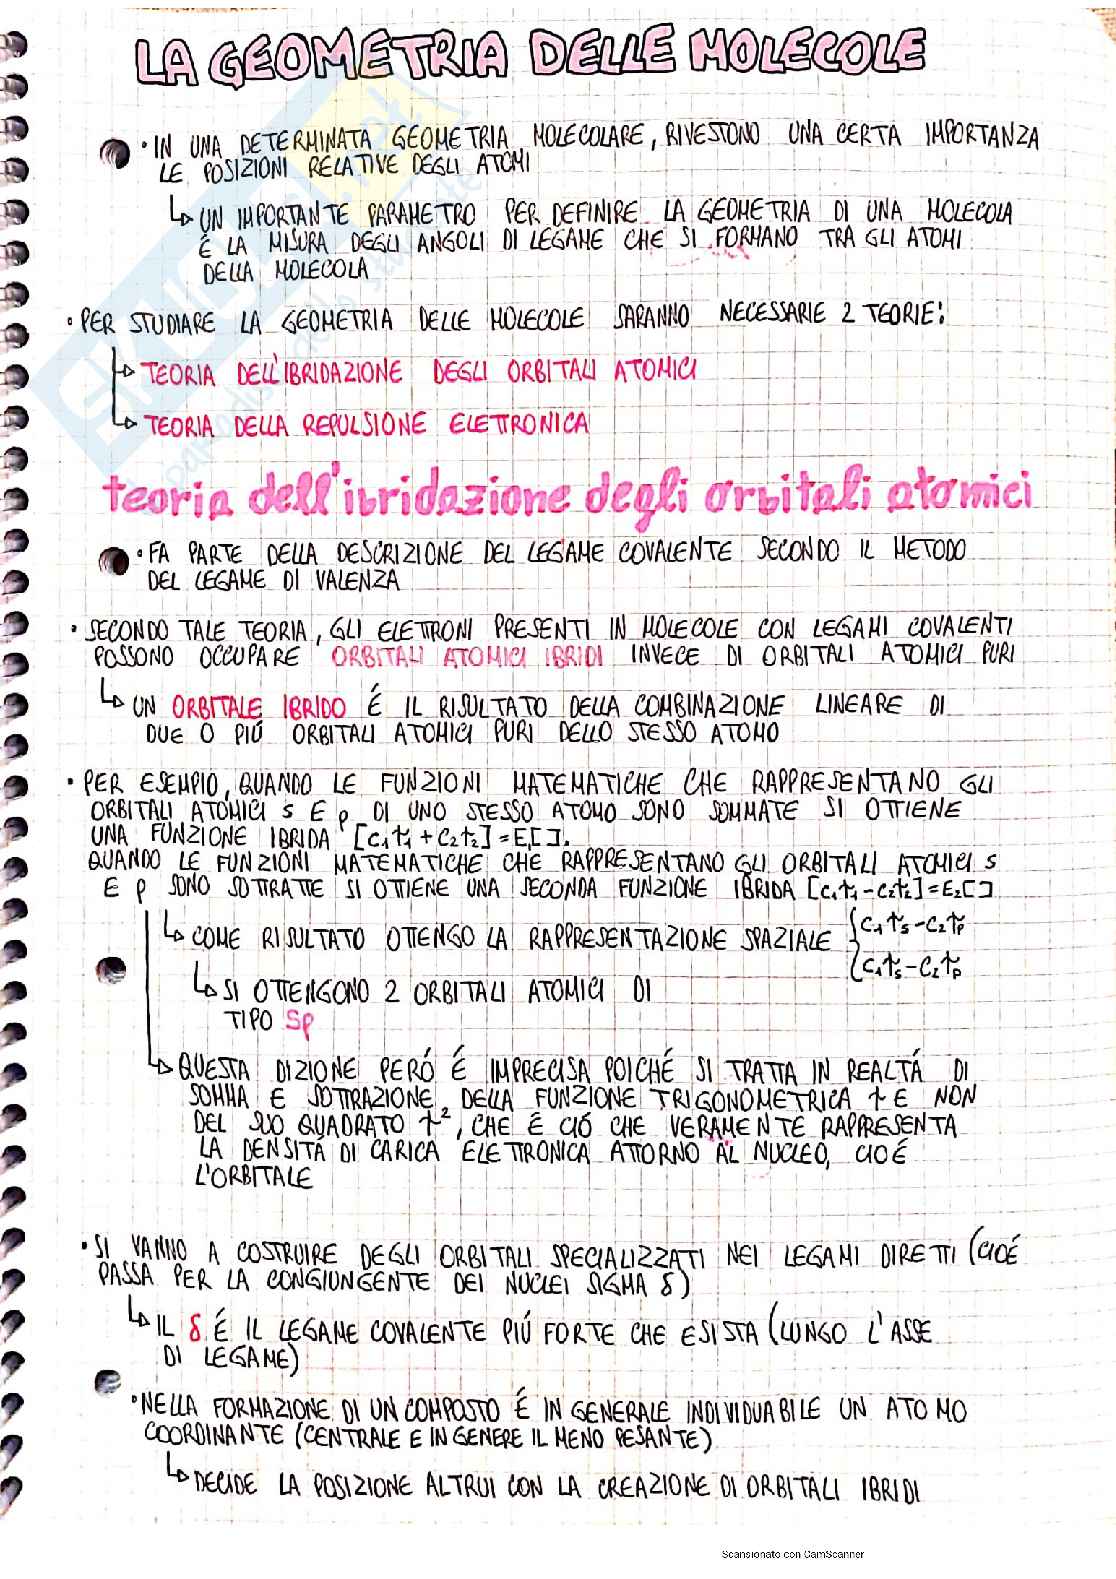 LA GEOMETRIA DELLE MOLECOLE
• IN UNA DETERMINATA GEOMETRIA MOLECOLARE, RIVESTONO UNA CERTA IMPORTANZA
LE POSIZIONI RELATIVE DEGLI ATOMI
↳ UN IMPORTANTE PARAMETRO PER DEFINIRE LA GEOMETRIA DI UNA MOLECOLA
É LA MISURA DEGLI ANGOLI DI LEGAME CHE SI FORMANO TRA GLI ATOMI
DELLA MOLECOLA
• PER STUDIARE LA GEOMETRIA DELLE MOLECOLE SARANNO NECESSARIE 2 TEORIE:
↳ TEORIA DELL'IBRIDAZIONE DEGLI ORBITALI ATOMICI
↳ TEORIA DELLA REPULSIONE ELETTRONICA
teoria dell'ibridazione degli orbitali atomici
• FA PARTE DELLA DESCRIZIONE DEL LEGAME COVALENTE SECONDO IL METODO
DEL LEGAME DI VALENZA
• SECONDO TALE TEORIA, GLI ELETTRONI PRESENTI IN MOLECOLE CON LEGAMI COVALENTI
POSSONO OCCUPARE ORBITALI ATOMICI IBRIDI INVECE DI ORBITALI ATOMICI PURI
↳ UN ORBITALE IBRIDO É IL RISULTATO DELLA COMBINAZIONE LINEARE DI
DUE O PIÚ ORBITALI ATOMICI PURI DELLO STESSO ATOMO
• PER ESEMPIO, QUANDO LE FUNZIONI MATEMATICHE CHE RAPPRESENTANO GLI
ORBITALI ATOMICI s E p DI UNO STESSO ATOMO SONO SOMMATE SI OTTIENE
UNA FUNZIONE IBRIDA [c₁ψ₁ + c₂ψ₂] = E₁[].
QUANDO LE FUNZIONI MATEMATICHE CHE RAPPRESENTANO GLI ORBITALI ATOMICI s
E p SONO SOTTRATTE SI OTTIENE UNA SECONDA FUNZIONE IBRIDA [c₁ψ₁ - c₂ψ₂] = E₂[]
↳ COME RISULTATO OTTENGO LA RAPPRESENTAZIONE SPAZIALE { c₁ψs - c₂ψp
c₁ψs - c₂ψp
↳ SI OTTENGONO 2 ORBITALI ATOMICI DI
TIPO Sp
↳ QUESTA DIZIONE PERÓ É IMPRECISA POICHÉ SI TRATTA IN REALTÁ DI
SOMMA E SOTTRAZIONE DELLA FUNZIONE TRIGONOMETRICA ψ E NON
DEL SUO QUADRATO ψ², CHE É CIÓ CHE VERAMENTE RAPPRESENTA
LA DENSITÁ DI CARICA ELETTRONICA ATTORNO AL NUCLEO, CIOÉ
L'ORBITALE
• SI VANNO A COSTRUIRE DEGLI ORBITALI SPECIALIZZATI NEI LEGAMI DIRETTI (CIOÉ
PASSA PER LA CONGIUNGENTE DEI NUCLEI SIGMA δ)
↳ IL δ É IL LEGAME COVALENTE PIÚ FORTE CHE ESISTA (LUNGO L'ASSE
DI LEGAME)
• NELLA FORMAZIONE DI UN COMPOSTO É IN GENERALE INDIVIDUABILE UN ATOMO
COORDINANTE (CENTRALE E IN GENERE IL MENO PESANTE)
↳ DECIDE LA POSIZIONE ALTRUI CON LA CREAZIONE DI ORBITALI IBRIDI
Scansionato con CamScanner